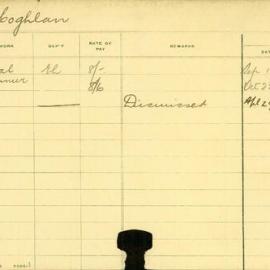 Coghlan
WORK DEP'T RATE OF PAY REMARKS DATE
El 8/- Sep
8/6 Oct 2
Dismissed Apl 2